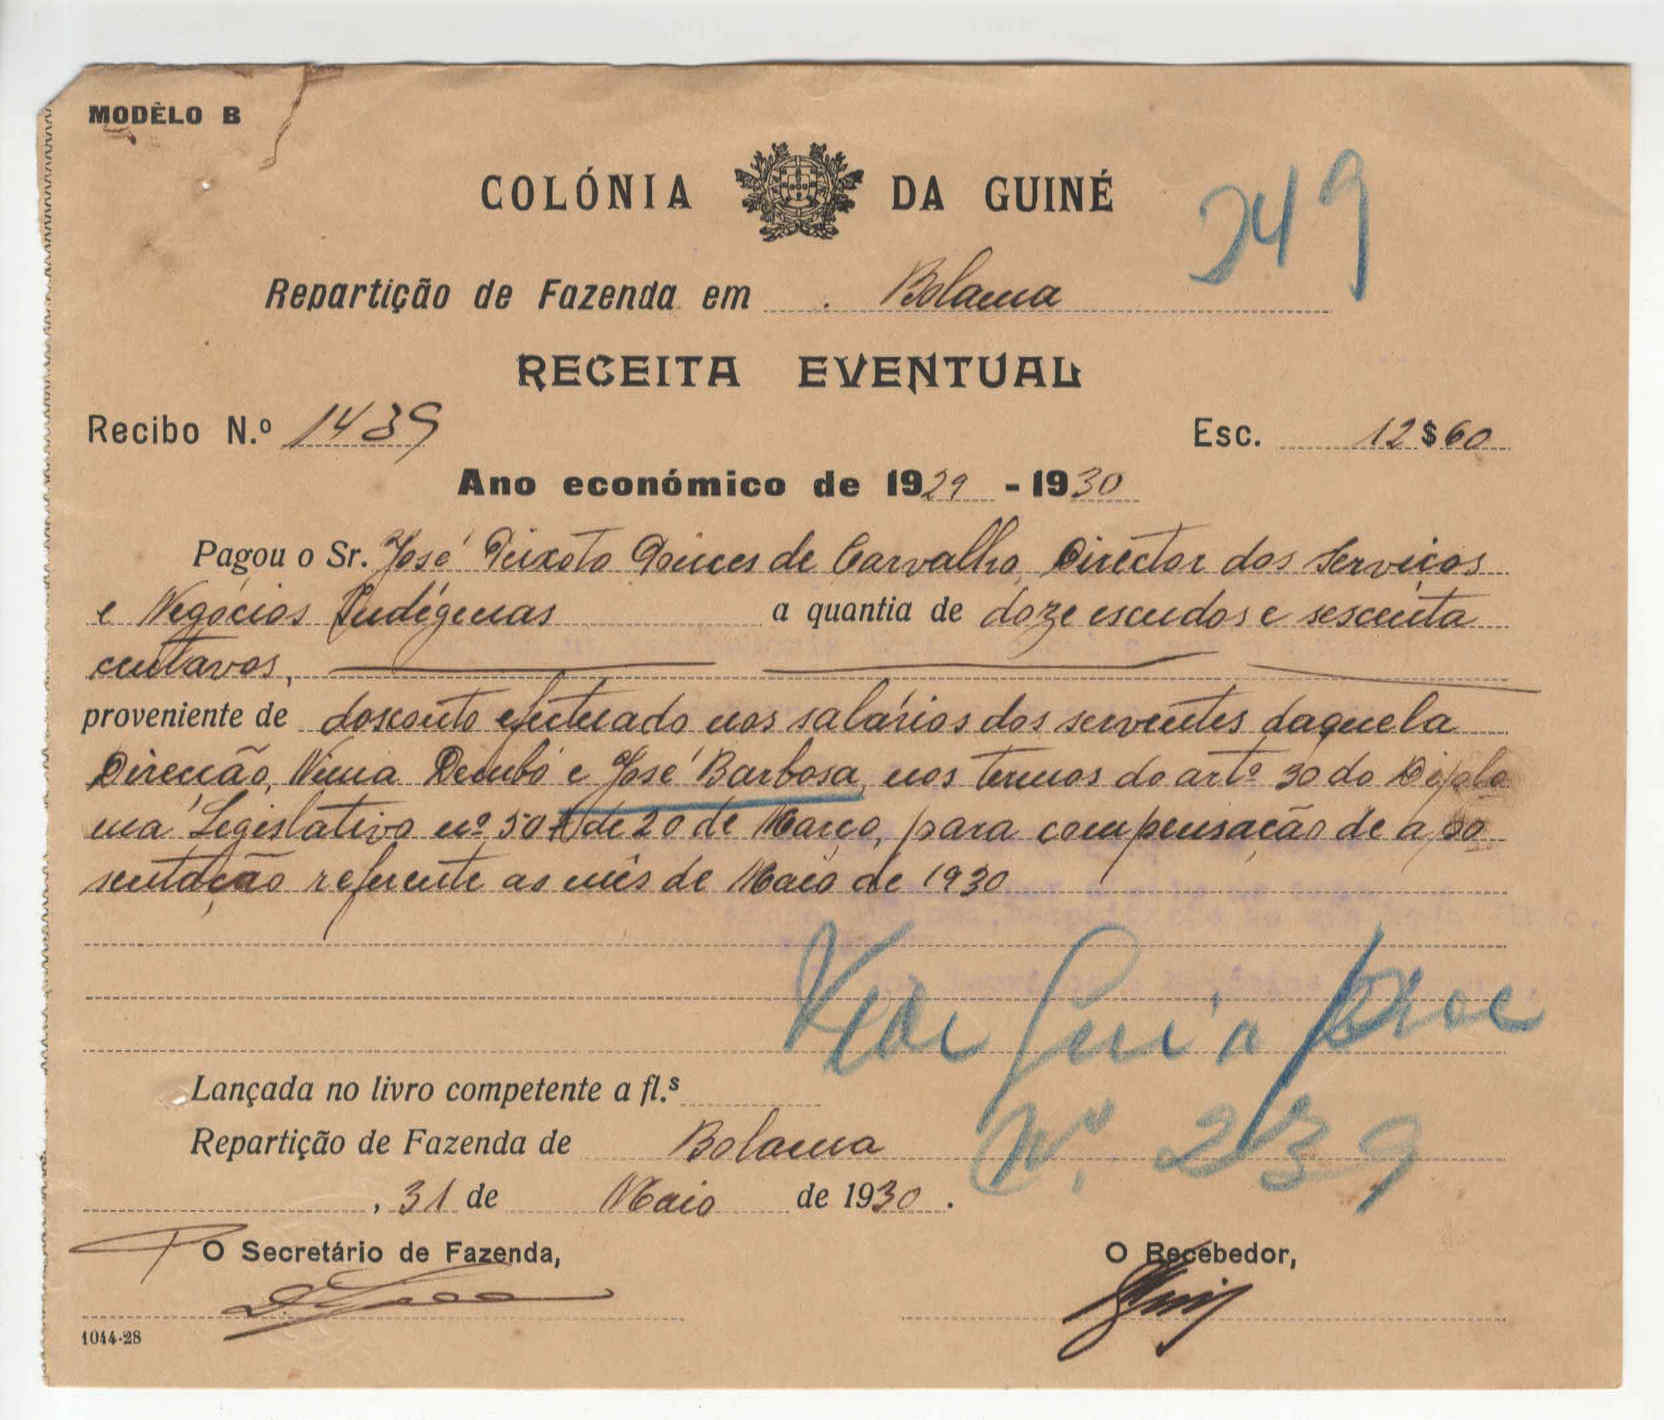 MODÊLO B
COLÓNIA DA GUINÉ
249
Repartição de Fazenda em Bolama
RECEITA EVENTUAL
Recibo N.º 1439 Esc. 12$60
Ano económico de 1929 - 1930
Pagou o Sr. José Peixoto Ponces de Carvalho, Director dos Serviços
e Negócios Indígenas a quantia de doze escudos e sessenta
centavos,
proveniente de desconto efectuado nos salários dos serventes daquela
Direcção, José Barbosa, nos termos do artº 30 do Diplo
ma Legislativo nº 501 de 20 de Março, para compensação de apo
sentação referente ao mês de Maio de 1930
Vide Guia
Nº. 239
Lançada no livro competente a fl.s
Repartição de Fazenda de Bolama
, 31 de Maio de 1930.
O Secretário de Fazenda,
O Recebedor,
1044-28